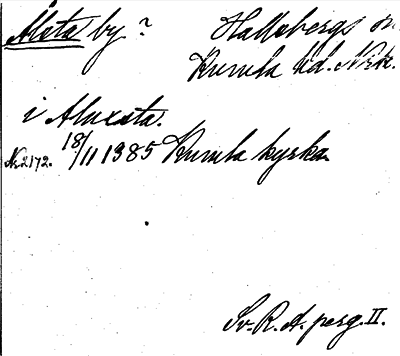 Ålsta by? Hallsbergs sn
Kumla hd. Nrk.
i Aluxsta.
Nr 2172. 18/11 1385 Kumla kyrka
Sv. R. A. perg. II.